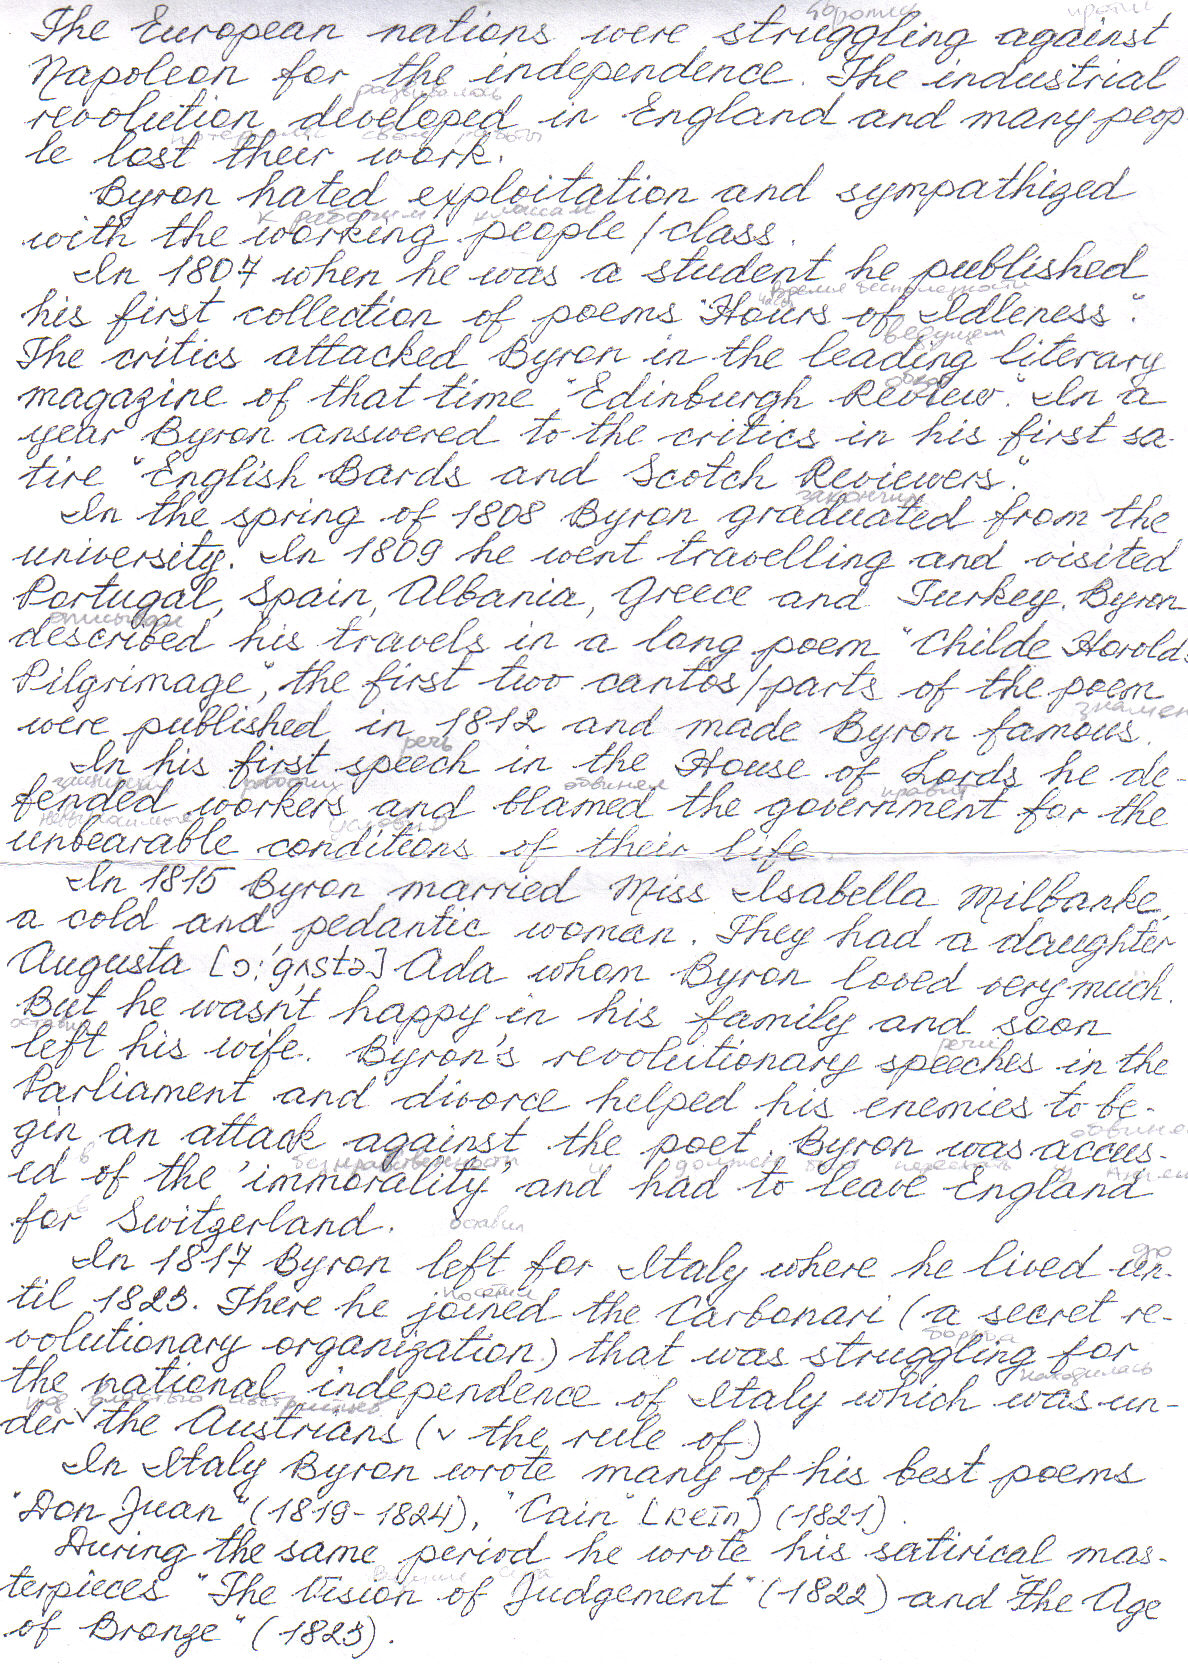 боролись против
The European nations were struggling against
Napoleon for the independence. The industrial
развивалась
revolution developed in England and many peop-
потеряли свои работы
le lost their work.
Byron hated exploitation and sympathized
к рабочим классам
with the working people/class.
In 1807 when he was a student he published
часы время бесполезности
his first collection of poems "Hours of Idleness".
ведущем
The critics attacked Byron in the leading literary
обзор
magazine of that time "Edinburgh Review". In a
year Byron answered to the critics in his first sa-
tire "English Bards and Scotch Reviewers".
закончил
In the spring of 1808 Byron graduated from the
university. In 1809 he went travelling and visited
Portugal, Spain, Albania, Greece and Turkey. Byron
описывал
described his travels in a long poem "Childe Harold's
Pilgrimage", the first two cantos/parts of the poem
знамен
were published in 1812 and made Byron famous.
речь
In his first speech in the House of Lords he de-
защищал рабочих обвинял
fended workers and blamed the government for the
условия
unbearable conditions of their life.
In 1815 Byron married Miss Isabella Milbanke,
a cold and pedantic woman. They had a daughter
Augusta [ɔ:'gʌstə] Ada whom Byron loved very much.
But he wasn't happy in his family and soon
оставил
left his wife. Byron's revolutionary speeches in the
речи
Parliament and divorce helped his enemies to be-
gin an attack against the poet. Byron was accus-
в безнравственности и должен был
ed of the "immorality" and had to leave England
в
for Switzerland.
оставил
In 1817 Byron left for Italy where he lived un-
до
til 1823. There he joined the Carbonari (a secret re-
volutionary organization) that was struggling for
борьба
the national independence of Italy which was un-
находилась
под властью австрийцев
der ˅ the Austrians (˅ the rule of)
In Italy Byron wrote many of his best poems
"Don Juan" (1819-1824), "Cain" [keɪn] (1821).
During the same period he wrote his satirical mas-
terpieces "The Vision of Judgement" (1822) and "The Age
of Bronze" (1823).